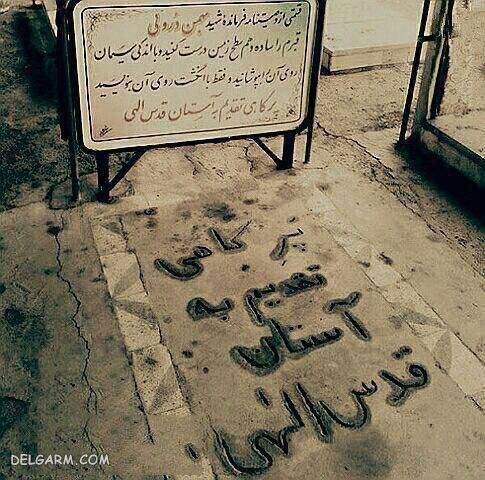 قسمتی از وصیتنامه فرمانده شهید بهمن درولی
قبرم را ساده و هم سطح زمین درست کنید و با اندکی سیمان
روی آن را بپوشانید و فقط با انگشت روی آن بنویسید
پر کاهی تقدیم به آستان قدس الهی
پر کاهی
تقدیم به
آستان
قدس الهی
DELGARM.COM